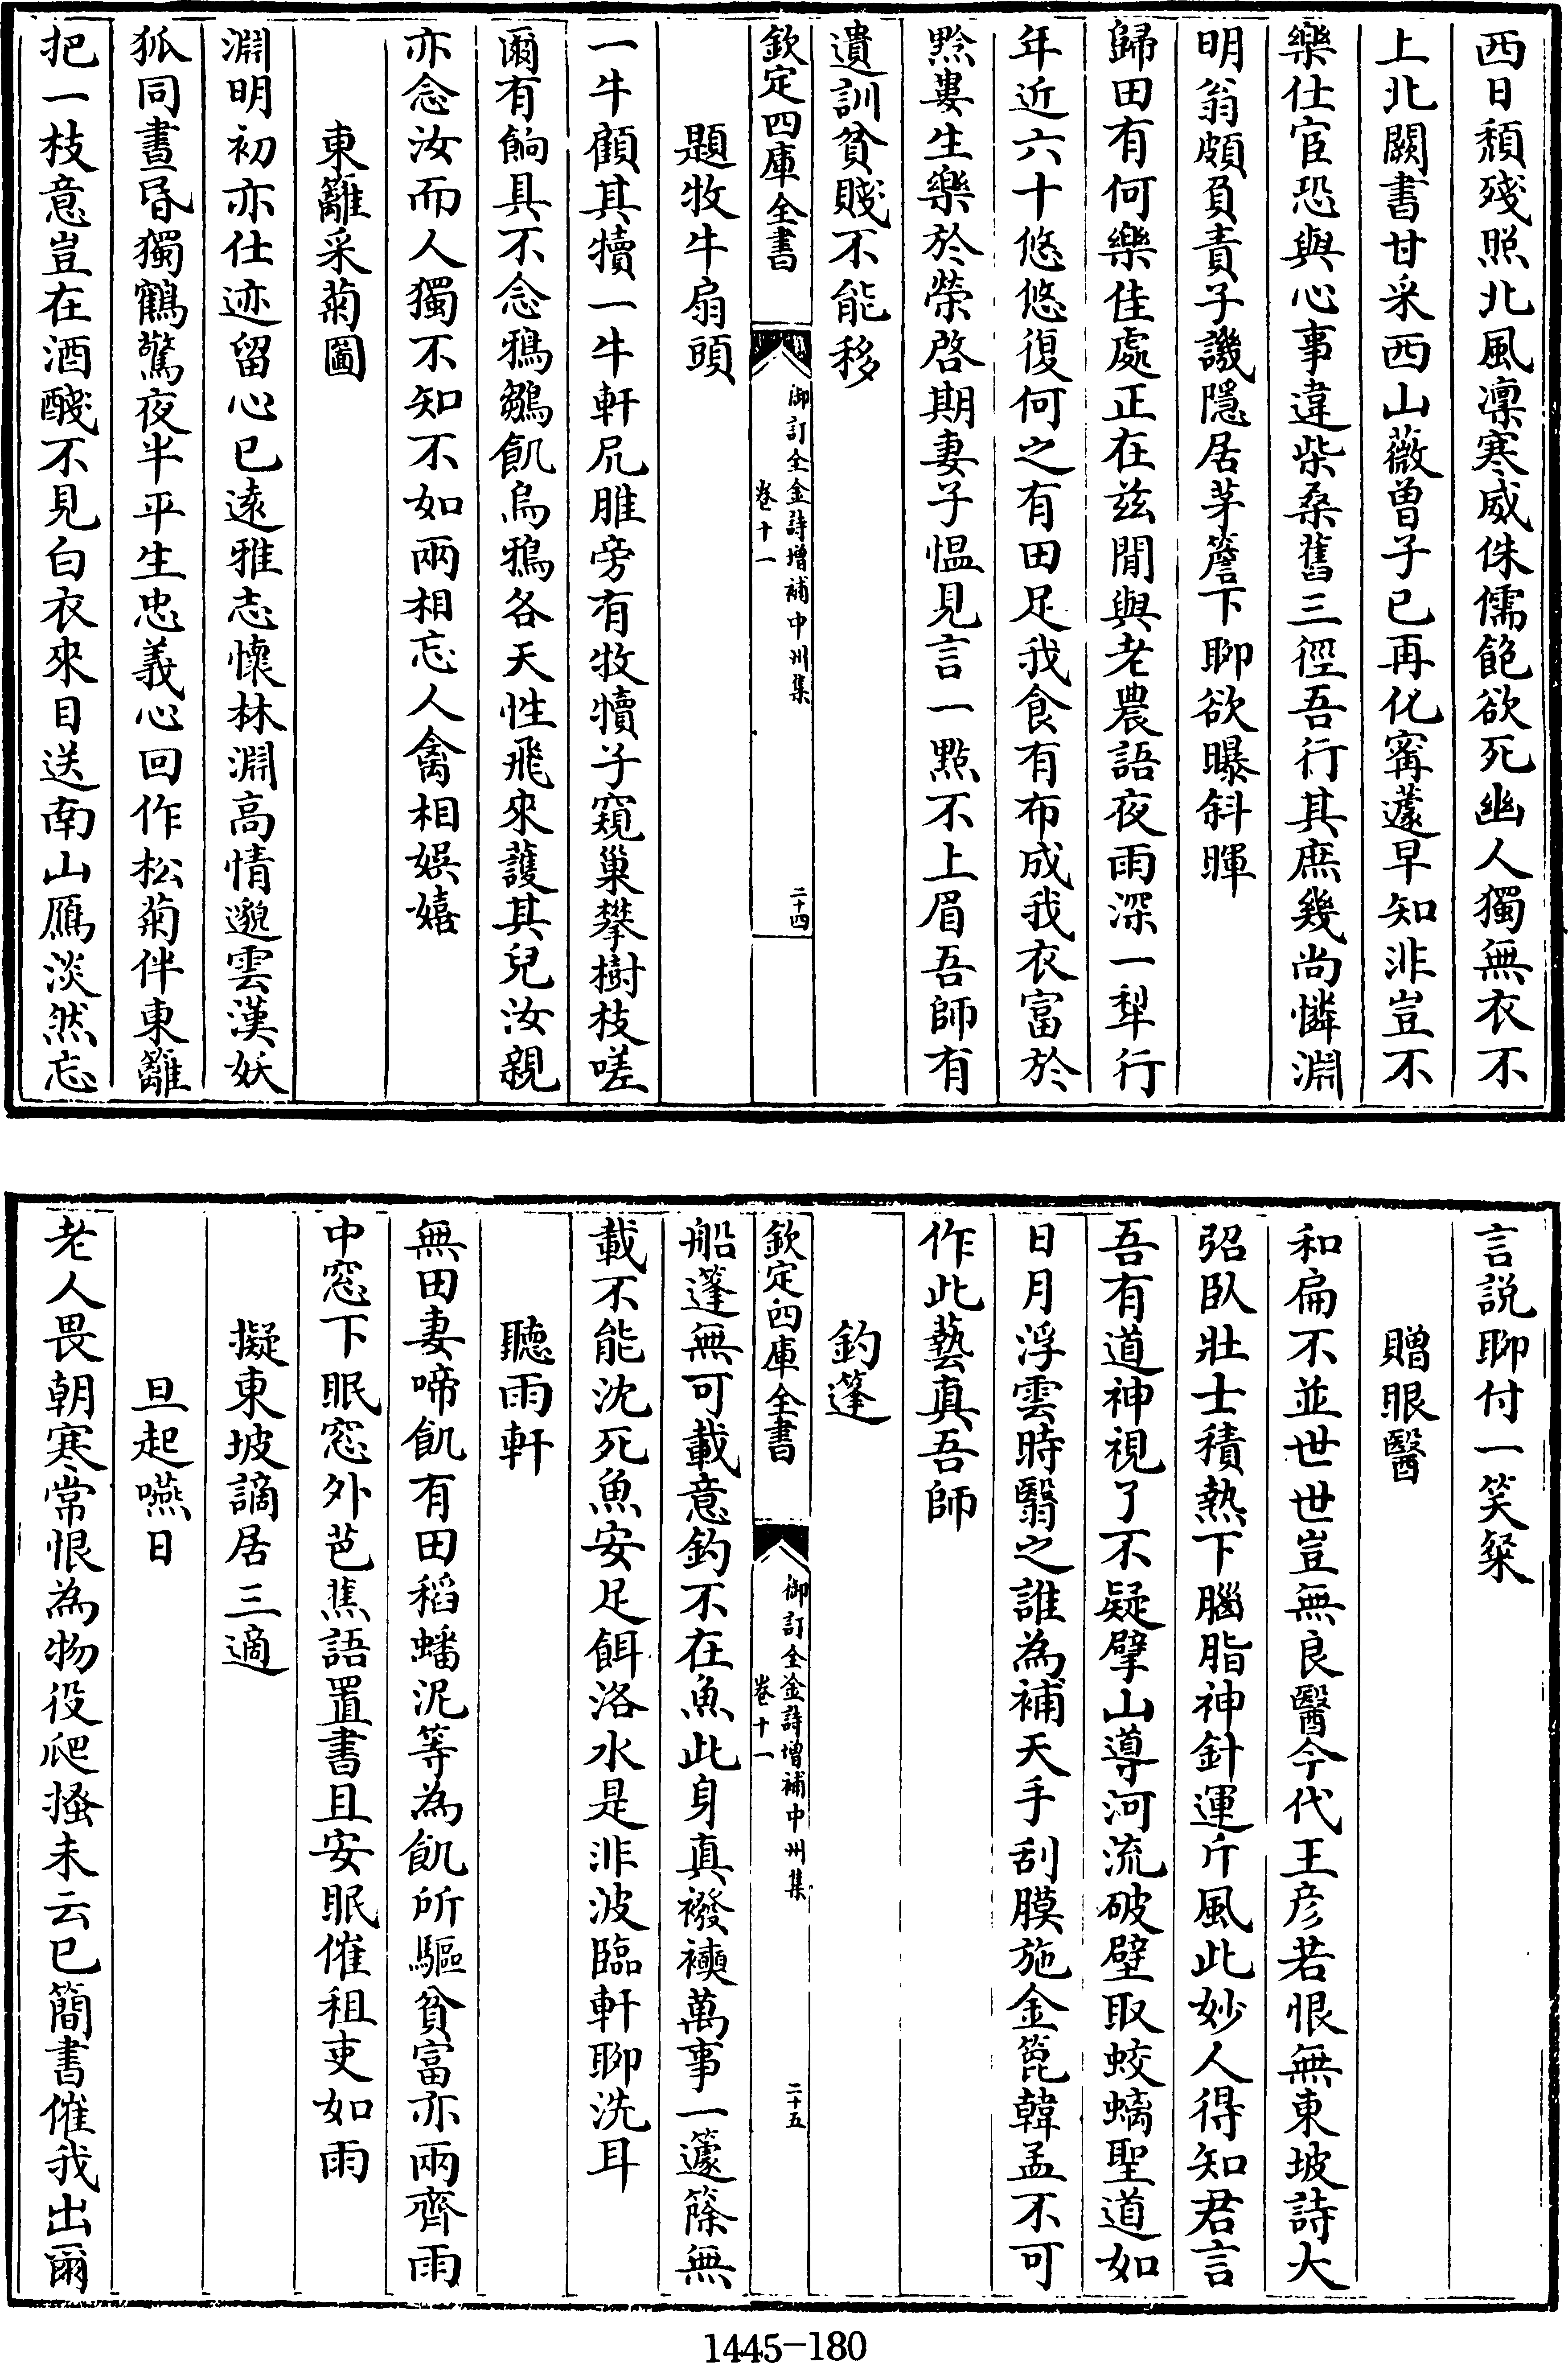 西日頹殘照北風凜寒威侏儒飽欲死幽人獨無衣不
上北闕書甘采西山薇曾子已再化甯蘧早知非豈不
樂仕宦恐與心事違柴桑舊三徑吾行其庶幾尚憐淵
明翁頗負責子譏隱居茅簷下聊欲曝斜暉
歸田有何樂佳處正在兹閒與老農語夜雨深一犁行
年近六十悠悠復何之有田足我食有布成我衣富於
黔婁生樂於榮啓期妻子愠見言一點不上眉吾師有
遺訓貧賤不能移
欽定四庫全書
御訂全金詩增補中州集
卷十一
二十四
題牧牛扇頭
一牛顧其犢一牛軒尻脽旁有牧犢子窺巢攀樹枝嗟
爾有餉具不念鴉鶵飢烏鴉各天性飛來護其兒汝親
亦念汝而人獨不知不如兩相忘人禽相娯嬉
東籬采菊圖
淵明初亦仕迹留心已遠雅志懷林淵高情邈雲漢妖
狐同晝昏獨鶴驚夜半平生忠義心回作松菊伴東籬
把一枝意豈在酒醆不見白衣來目送南山鴈淡然忘
言説聊付一笑粲
贈眼醫
和扁不並世世豈無良醫今代王彦若恨無東坡詩大
弨臥壯士積熱下腦脂神針運斤風此妙人得知君言
吾有道神視了不疑擘山導河流破壁取蛟螭聖道如
日月浮雲時翳之誰為補天手刮膜施金篦韓孟不可
作此藝真吾師
釣篷
欽定四庫全書
御訂全金詩增補中州集
卷十一
二十五
船篷無可載意釣不在魚此身真襏襫萬事一籧篨無
載不能沈死魚安足餌洛水是非波臨軒聊洗耳
聽雨軒
無田妻啼飢有田稻蟠泥等為飢所驅貧富亦兩齊雨
中窓下眠窓外芭蕉語置書且安眠催租吏如雨
擬東坡謫居三適
旦起嚥日
老人畏朝寒常恨為物役爬搔未云已簡書催我出爾
1445-180